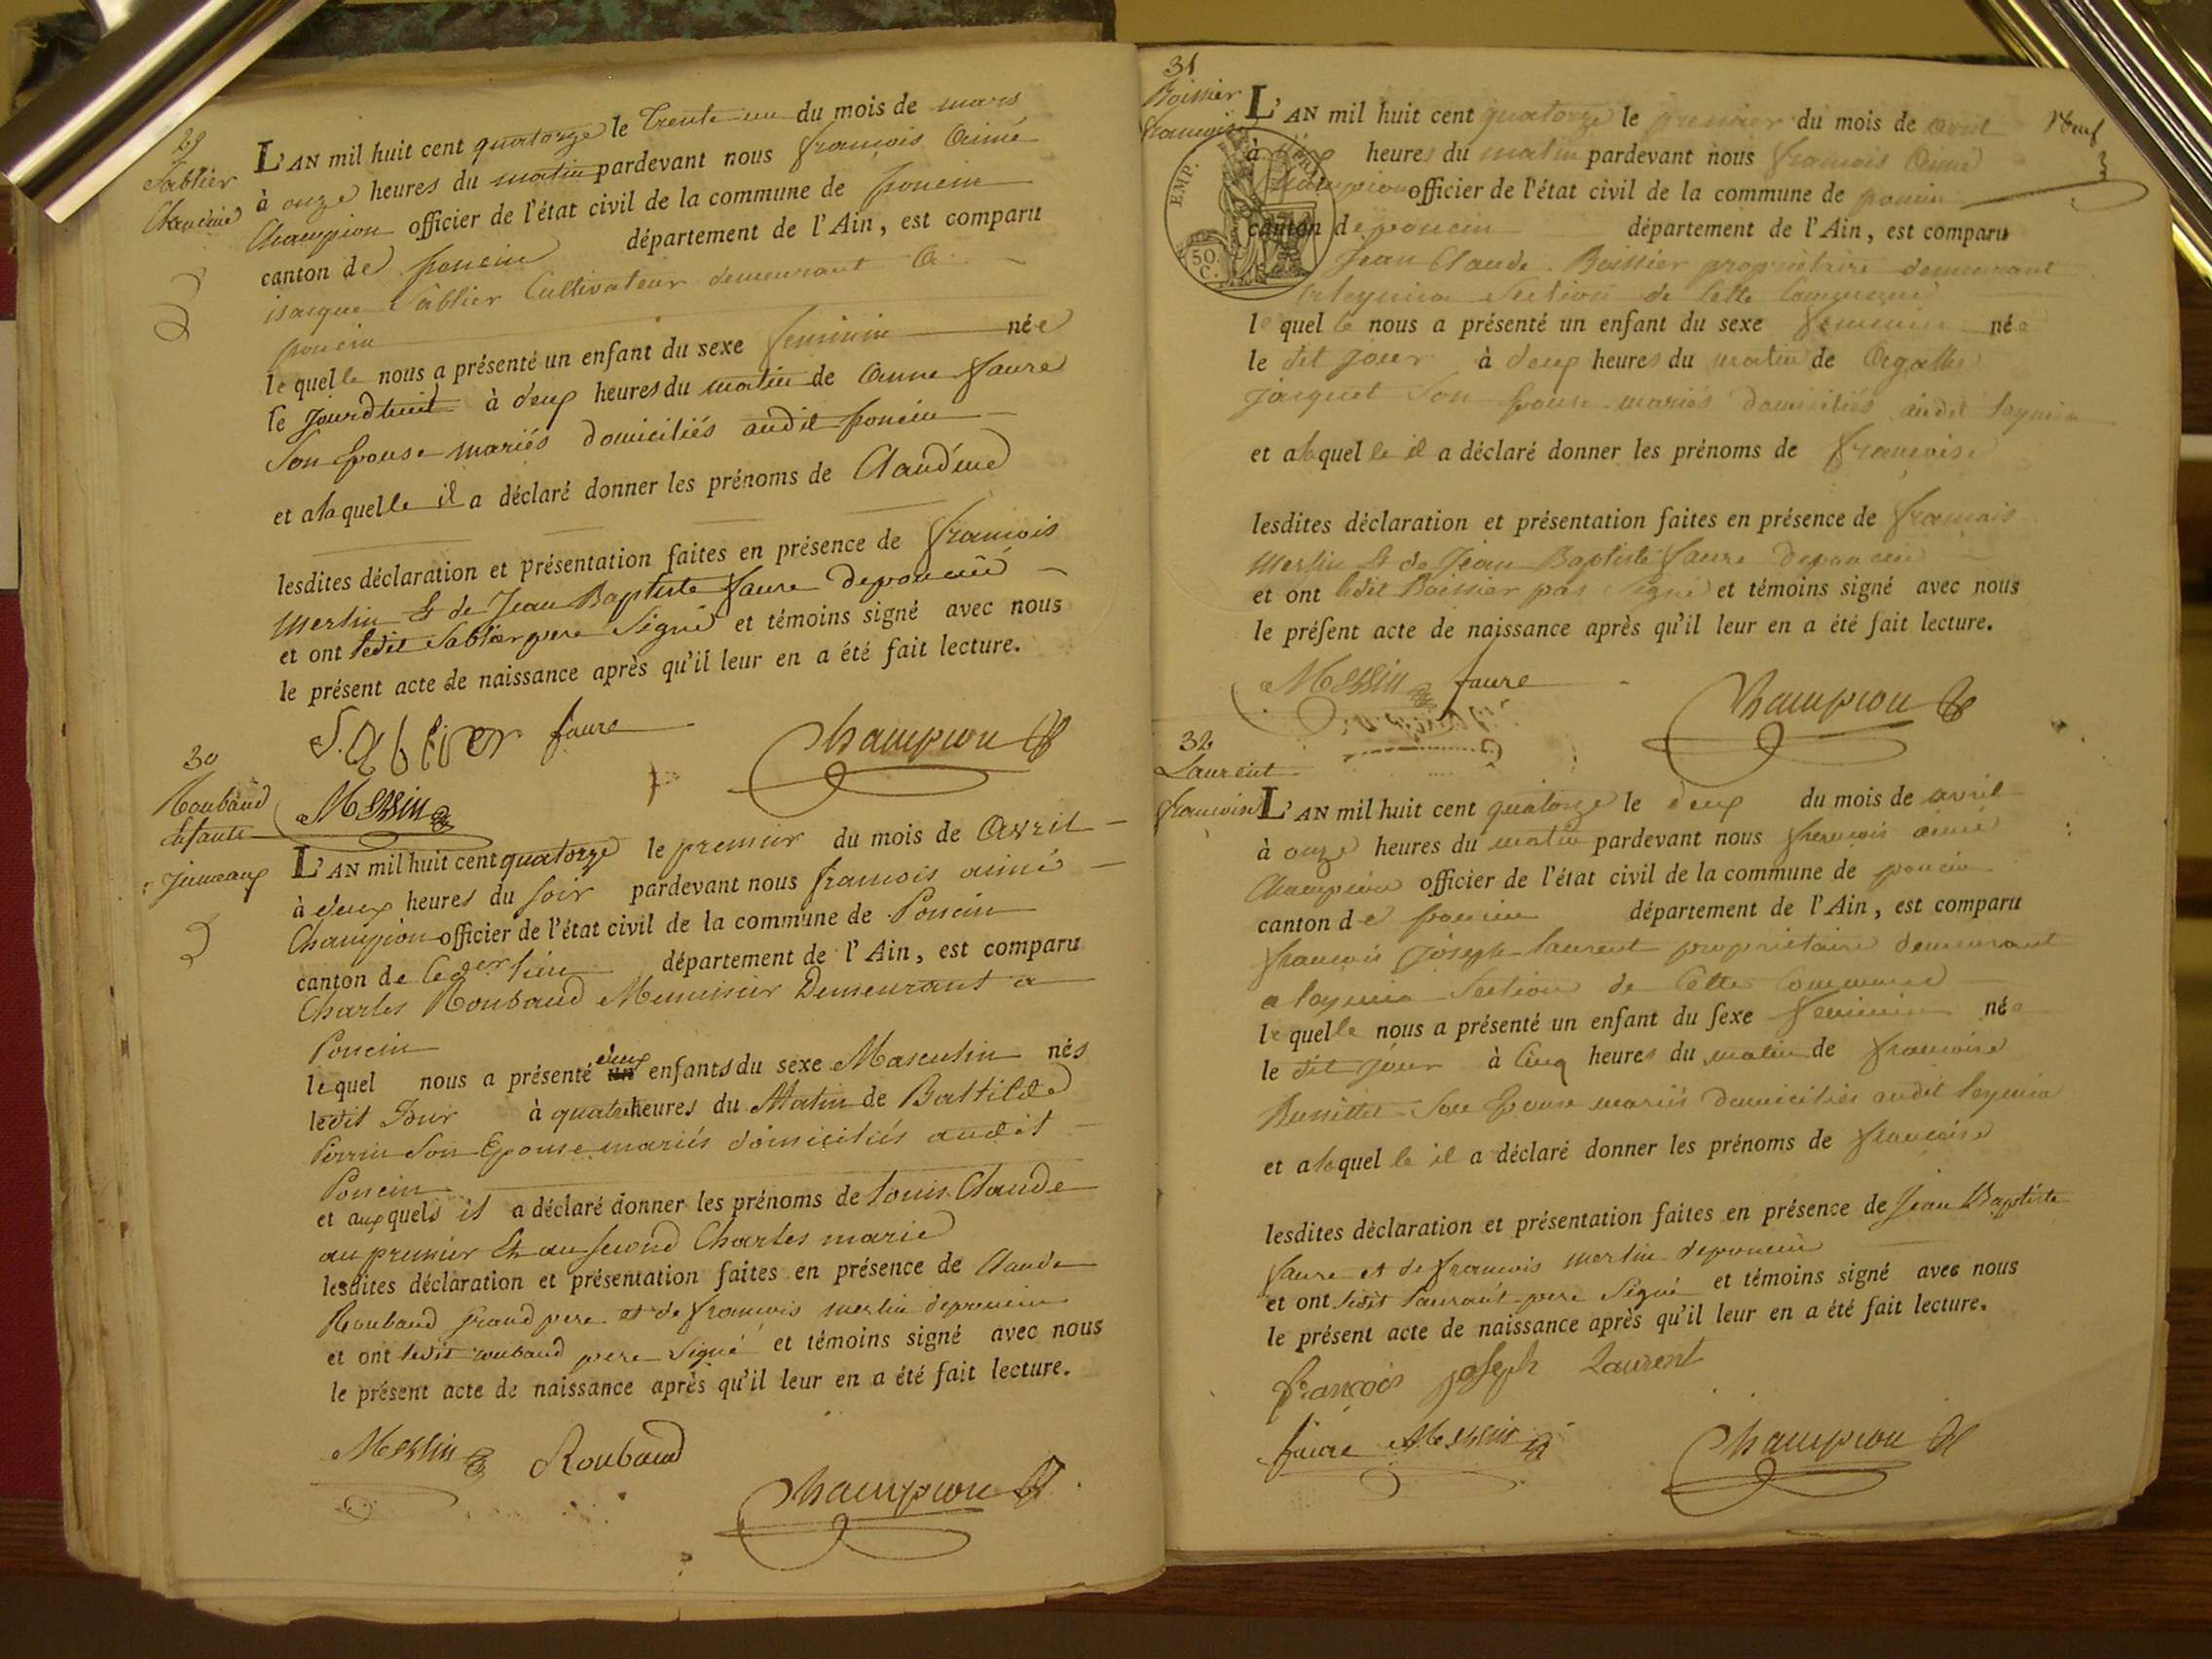 29
Sablier
Claudine
L'AN mil huit cent quatorze le trente un du mois de mars
à onze heures du matin pardevant nous françois Aimé
Champion officier de l'état civil de la commune de poncin
canton de poncin département de l'Ain, est comparu
Sablier Cultivateur demeurant a
poncin
lequelle nous a présenté un enfant du sexe feminin née
le jourdhuit à deux heures du matin de Anne faure
Son Epouse mariés domiciliés audit poncin
et alaquelle il a déclaré donner les prénoms de Claudine
lesdites déclaration et présentation faites en présence de françois
Merlin & de Jean Baptiste faure deponcin
et ont ledit Sablier pere Signé et témoins signé avec nous
le présent acte de naissance après qu'il leur en a été fait lecture.
Sablier faure Champion
Merlin
30
Roubaud
Enfants
Jumeaux
L'AN mil huit cent quatorze le premier du mois de Avril
à deux heures du soir pardevant nous françois aimé
Champion officier de l'état civil de la commune de Poncin
canton de département de l'Ain, est comparu
Charles Roubaud Menuisier Demeurant a
Poncin
lequel nous a présenté un deux enfants du sexe Masculin nés
ledit Jour à quatre heures du Matin de Baltilde
Perrin Son Epouse mariés domiciliés audit
Poncin
et auxquels il a déclaré donner les prénoms de Louis Claude
au premier Et au second Charles marie
lesdites déclaration et présentation faites en présence de Claude
Roubaud grand pere et de françois merlin deponcin
et ont ledit roubaud pere Signé et témoins signé avec nous
le présent acte de naissance après qu'il leur en a été fait lecture.
Merlin Roubaud
Champion
31
Boissier
françoise
EMP.
50.
C.
L'AN mil huit cent quatorze le premier du mois de avril
à heures du matin pardevant nous françois Aimé
Champion officier de l'état civil de la commune de poncin
canton de poncin département de l'Ain, est comparu
Jean Claude Boissier propriétaire demeurant
a leymia Section de Cette Commune
lequelle nous a présenté un enfant du sexe feminin née
le dit jour à deux heures du matin de Agathe
jacquet Son Epouse mariés domiciliés audit leymia
et alaquelle il a déclaré donner les prénoms de françoise
lesdites déclaration et présentation faites en présence de françois
Merlin & de Jean Baptiste faure deponcin
et ont ledit Boissier pas Signé et témoins signé avec nous
le présent acte de naissance après qu'il leur en a été fait lecture.
Merlin faure
Champion
32
Laurent
françoise
L'AN mil huit cent quatorze le deux du mois de avril
à onze heures du matin pardevant nous françois aimé
Champion officier de l'état civil de la commune de poncin
canton de poncin département de l'Ain, est comparu
françois joseph laurent propriétaire demeurant
a leymia Section de Cette Commune
lequelle nous a présenté un enfant du sexe feminin née
le dit jour à Cinq heures du matin de françoise
Son Epouse mariés domiciliés audit leymia
et alaquelle il a déclaré donner les prénoms de françoise
lesdites déclaration et présentation faites en présence de Jean Baptiste
faure et de françois merlin deponcin
et ont ledit laurant pere Signé et témoins signé avec nous
le présent acte de naissance après qu'il leur en a été fait lecture.
françois joseph Laurent
faure Merlin Champion